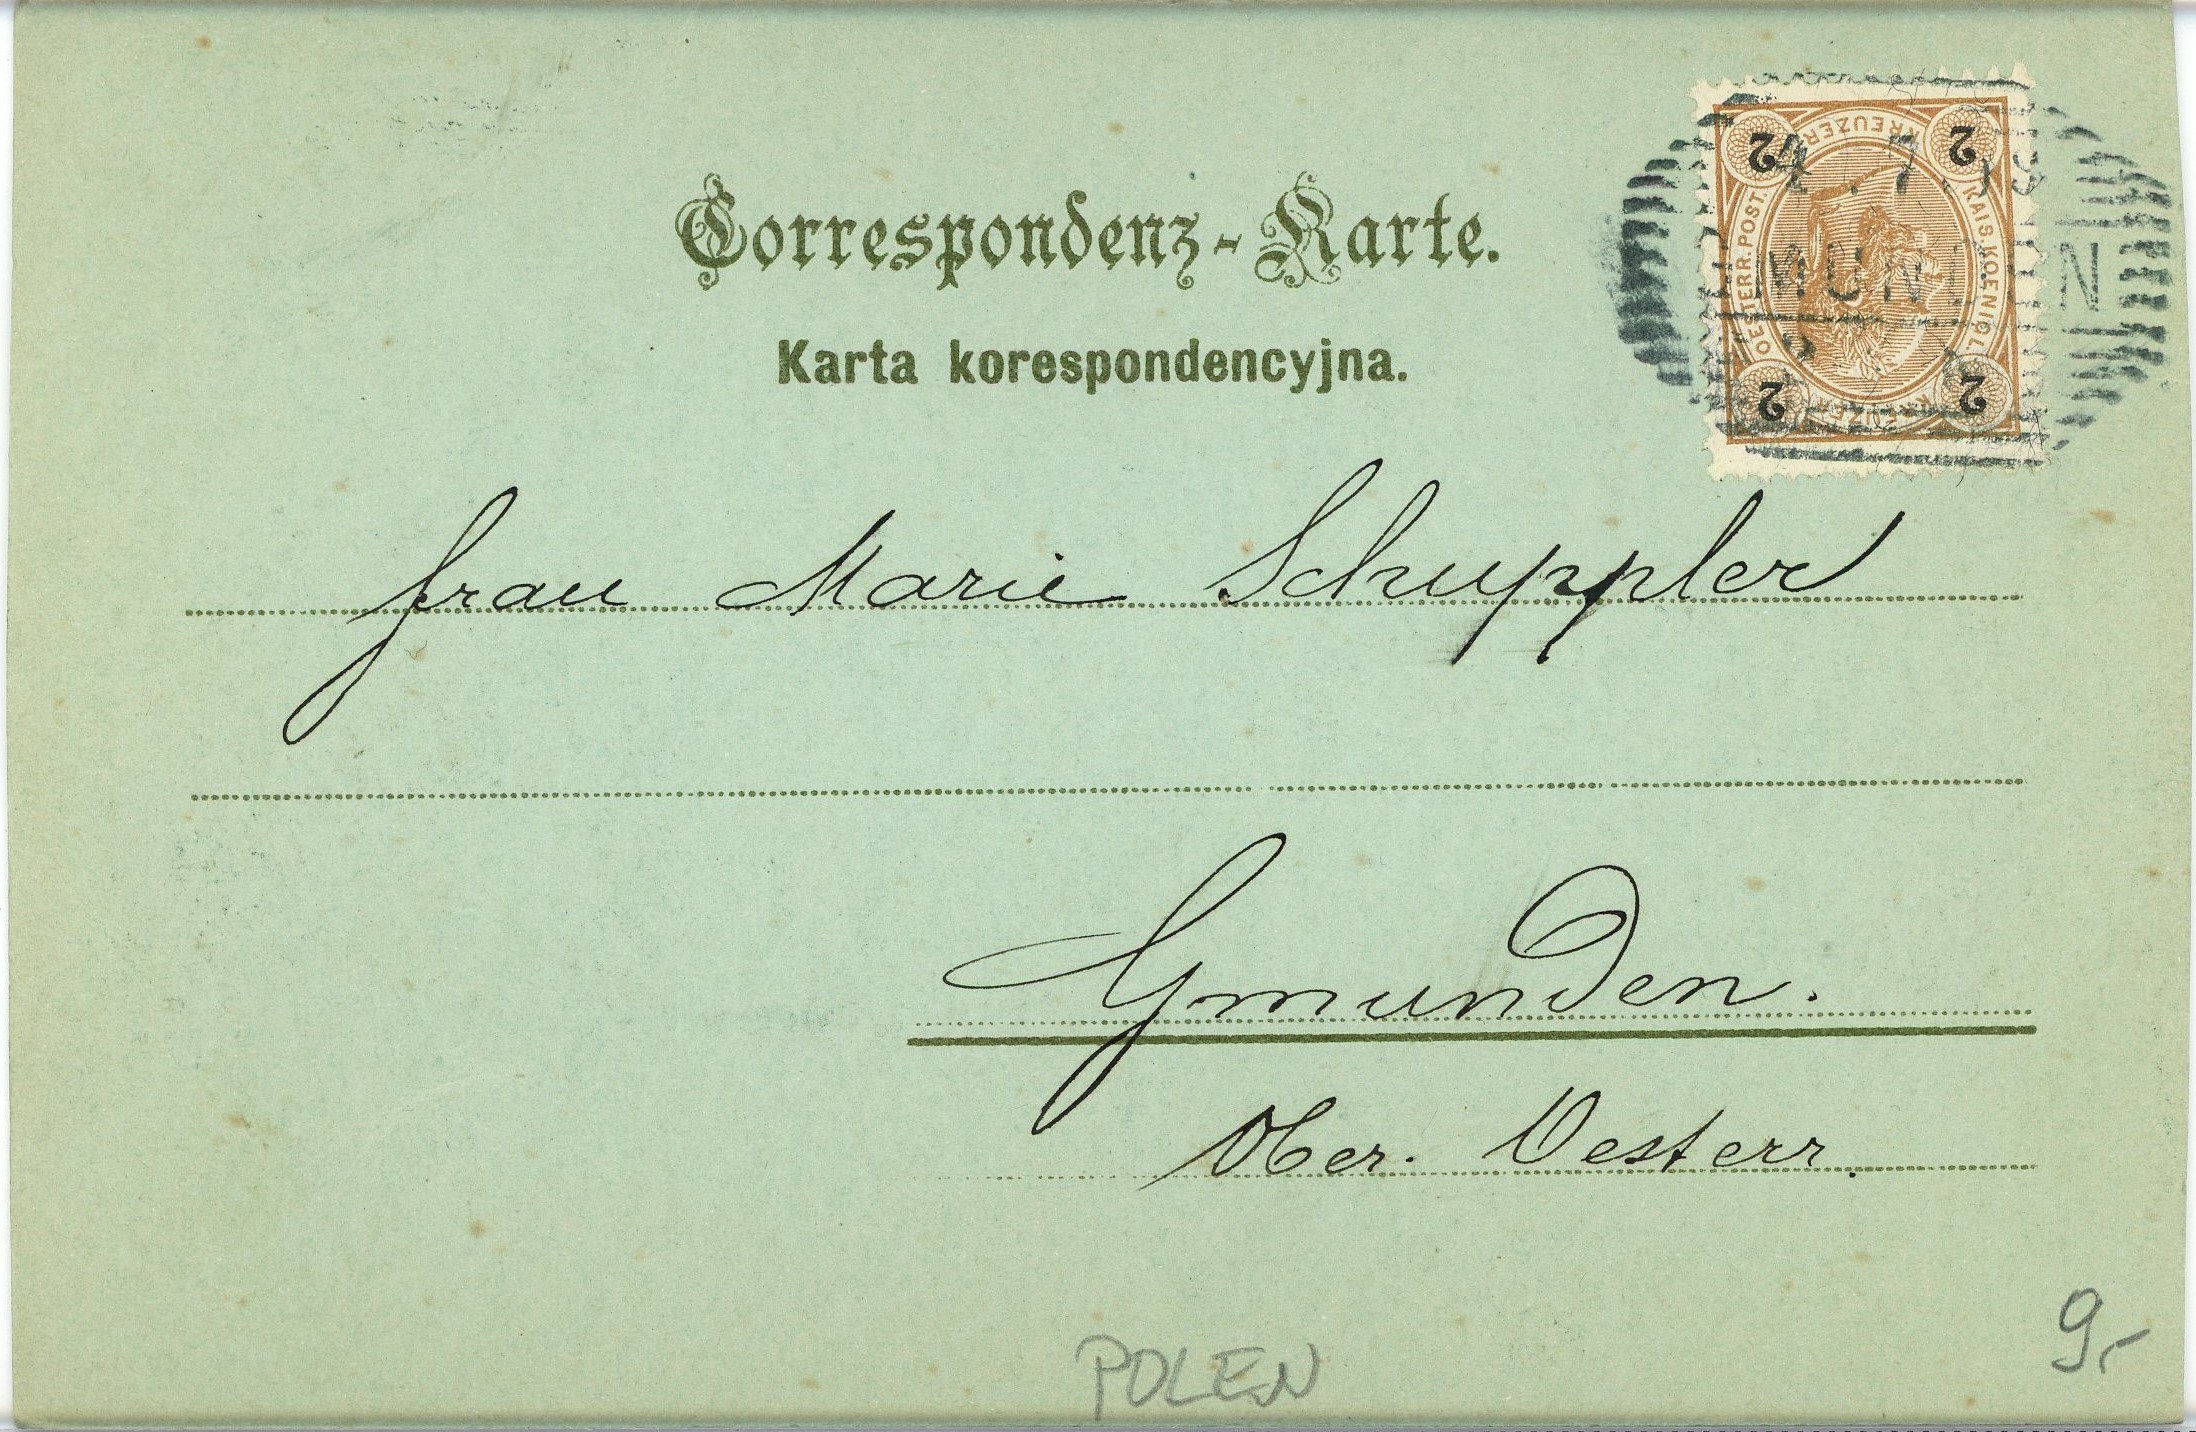 Correspondenz-Karte.
Karta korespondencyjna.
2 KREUZER 2
OESTERR. POST. KAIS. KOENIGL.
2 KREUZER 2
4.7.
GMUNDEN
Frau Marie Schuppler
Gmunden.
Ober. Oesterr.
POLEN
9,-